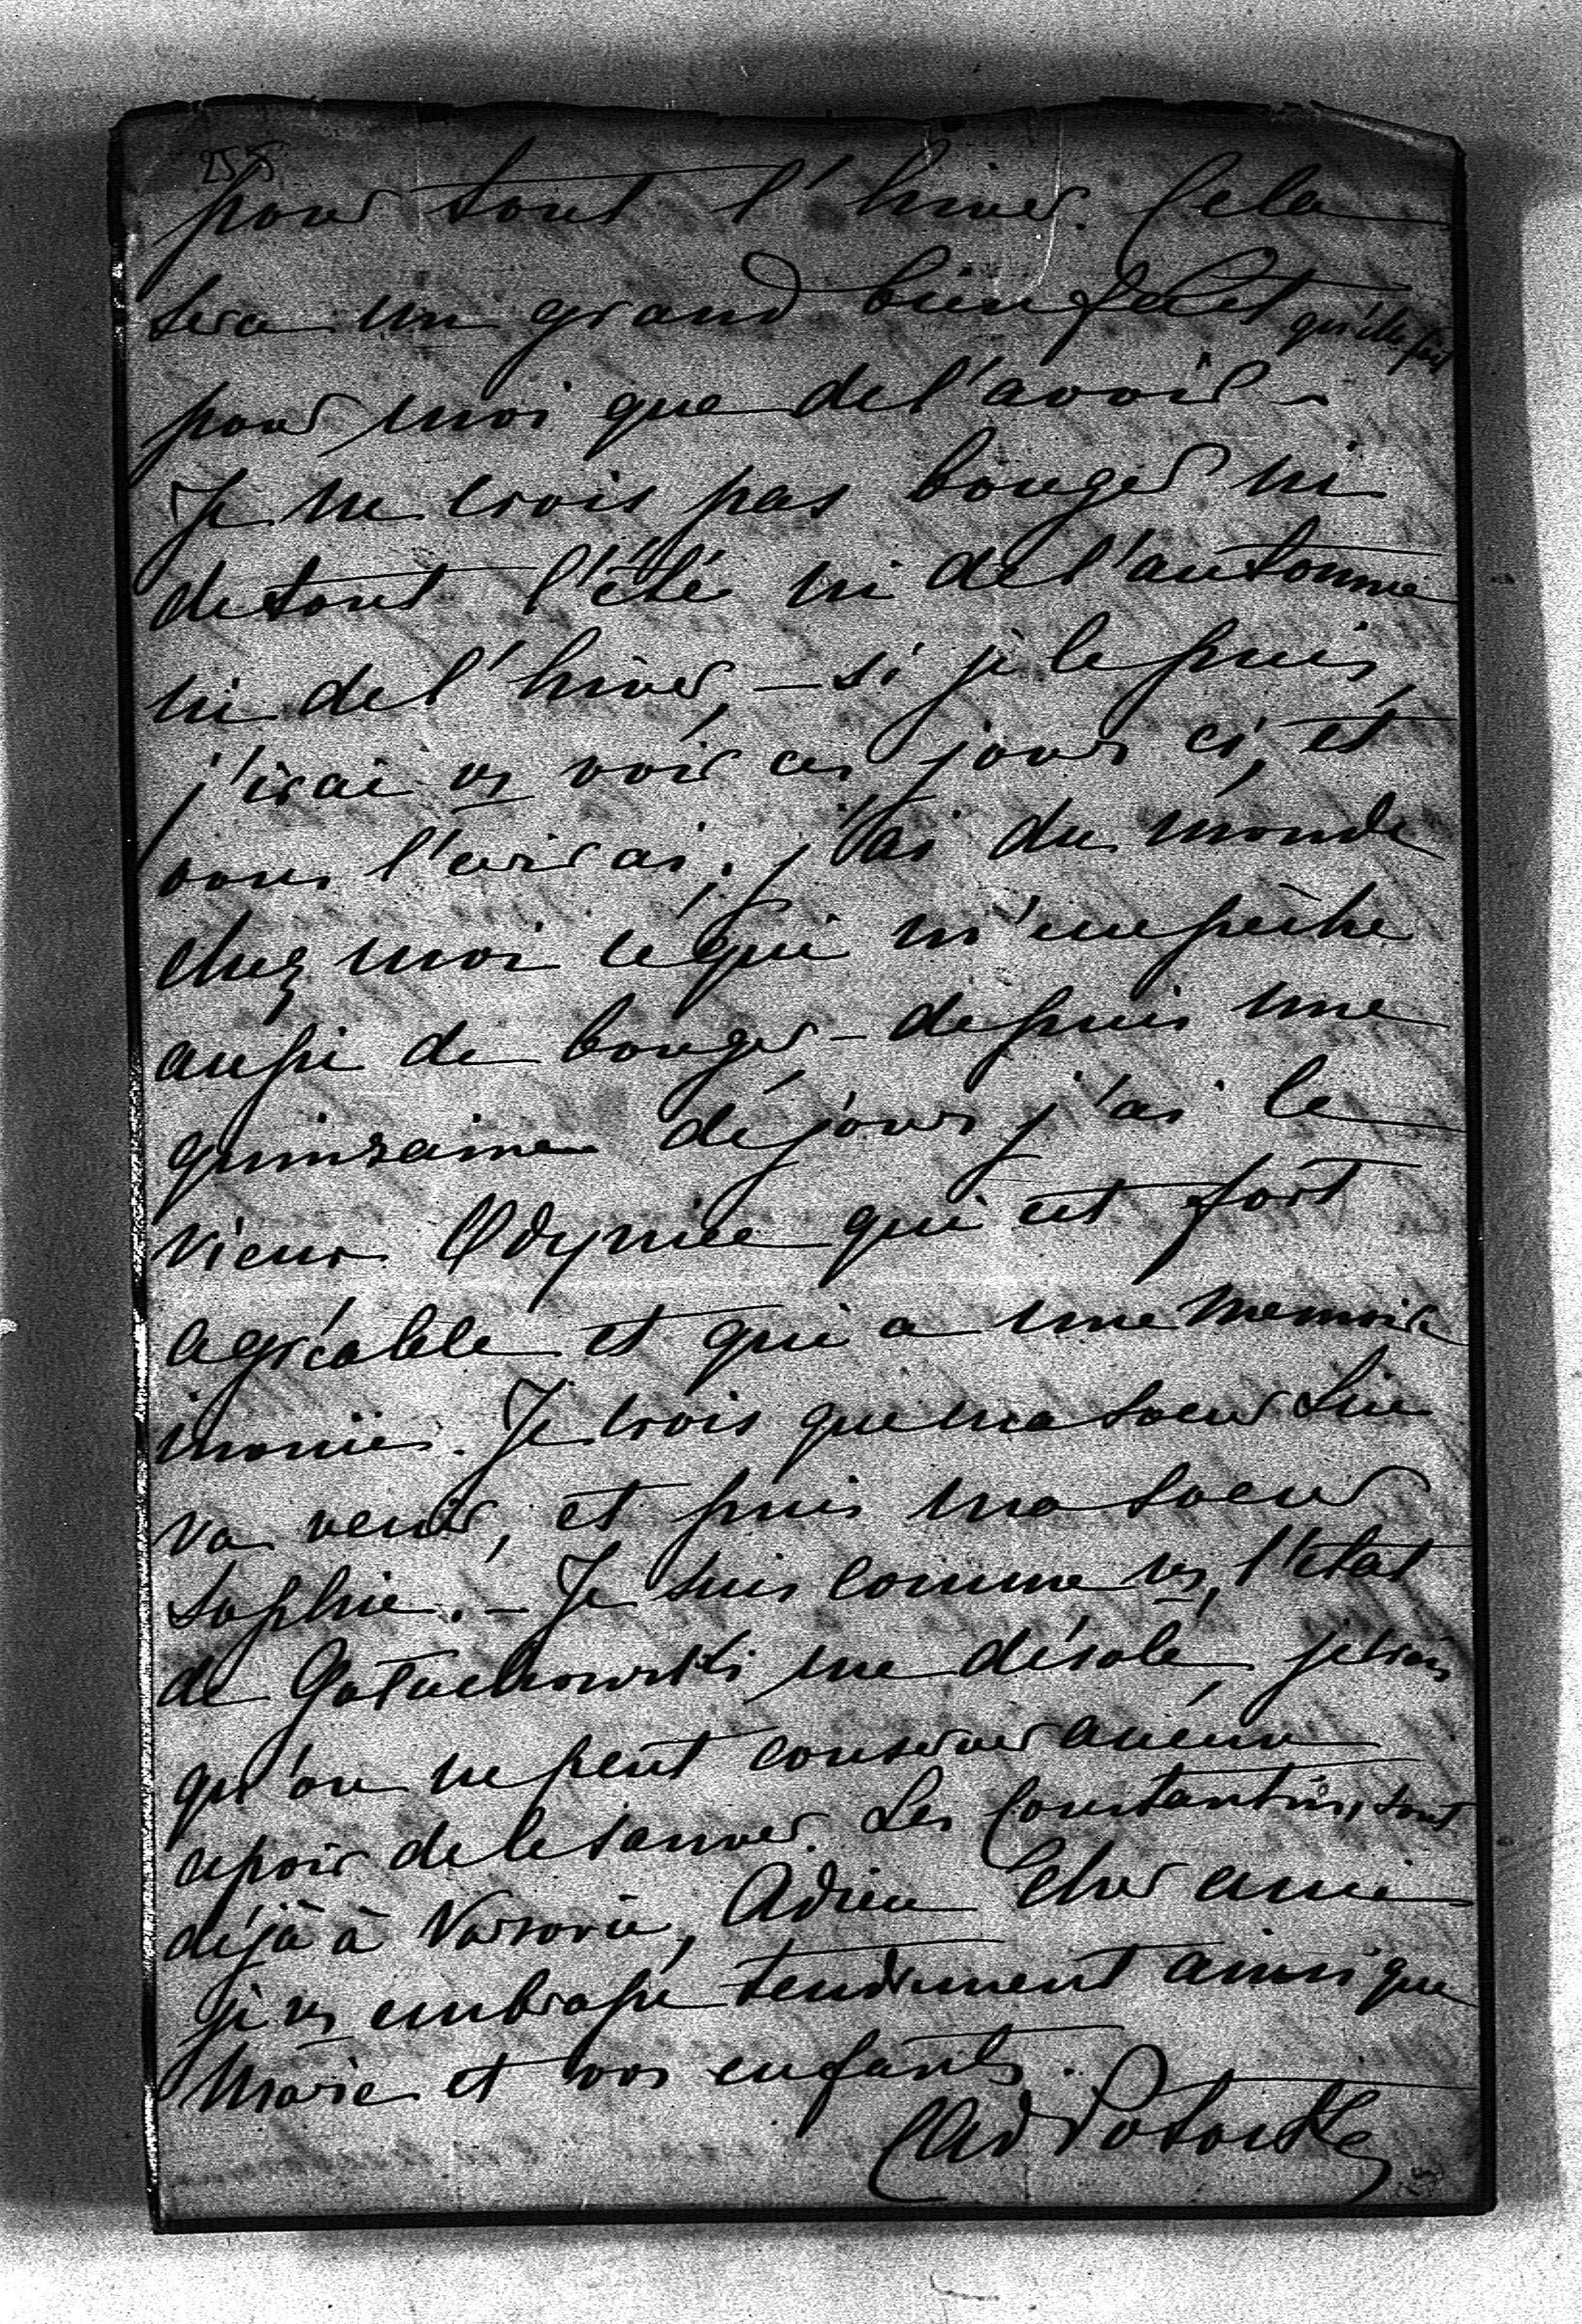 255
pour tout l'hiver. Cela
sera un grand bienfait qu'elle fait
pour moi que de l'avoir –
Je ne crois pas bouger ni
de tout l'été ni de l'automne
ni de l'hiver, – si je le puis
j'irai vs voir ces jours ci, et
vous l'écrirai; j'ai du monde
chez moi ce qui m'empêche
aussi de bouger – depuis une
quinzaine de jours j'ai le
vieux Odyniec qui est fort
agréable et qui a une memoire
inouïe. Je crois que ma soeur
va venir, et puis ma soeur
Sophie. – Je suis comme vs, l'état
de me désole, je crois
qu'on ne peut conserver aucun
espoir de le sauver. Les Constantins, sont
déjà à Varsovie, Adieu Cher ami
je vs embrasse tendrement ainsi que
Marie et vos enfants.
Ad Potocki